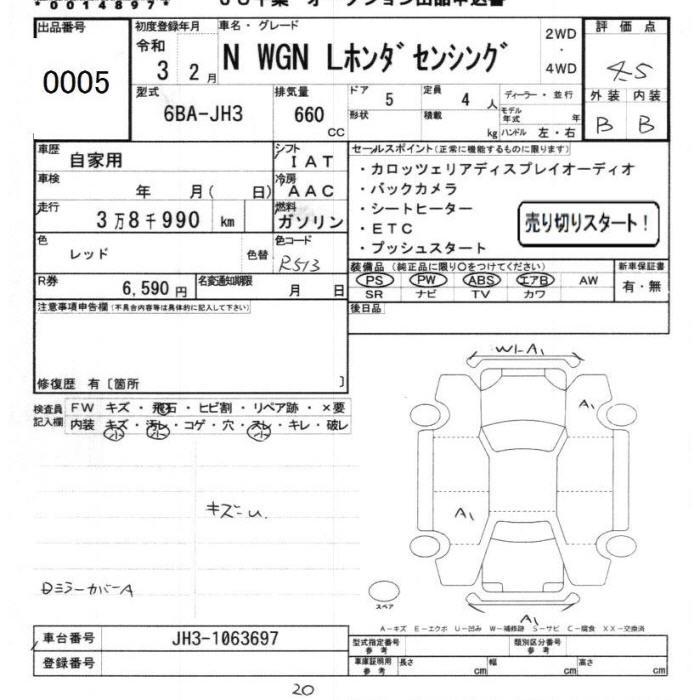 *00148977*
出品番号
0005
初度登録年月
令和
3 2月
車名・グレード
N WGN Lホンダセンシング
2WD
・
4WD
評価点
4.5
外装 内装
B B
型式
6BA-JH3
排気量
660
CC
ドア
5
定員
4 人
ディーラー・並行
形状
積載
kg
モデル年式
年
ハンドル 左・右
車歴
自家用
シフト
IAT
車検
年 月( 日)
冷房
AAC
走行
3万8千990 km
燃料
ガソリン
色
レッド
色替
色コード
R513
R券
6,590円
名変通知期限
月 日
セールスポイント(正常に機能するものに限ります)
・カロッツェリアディスプレイオーディオ
・バックカメラ
・シートヒーター
・ETC
・プッシュスタート
売り切りスタート！
装備品(純正品に限り○をつけてください)
PS PW ABS エアB AW
SR ナビ TV カワ
新車保証書
有・無
注意事項申告欄(不具合内容等は具体的に記入して下さい)
後日品
修復歴 有〔箇所 〕
検査員記入欄
FW キズ・飛石・ヒビ割・リペア跡・×要
内装 キズ・汚レ・コゲ・穴・スレ・キレ・破レ
小 小 小
キズU.
DミラーカバーA
W1.A1
A1
A1
A1
スペア
A−キズ E−エクボ U−凹み W−補修跡 S−サビ C−腐食 XX−交換済
車台番号
JH3-1063697
登録番号
型式指定番号
参考
類別区分番号
参考
車庫証明用
参考
長さ cm
幅 cm
高さ cm
20